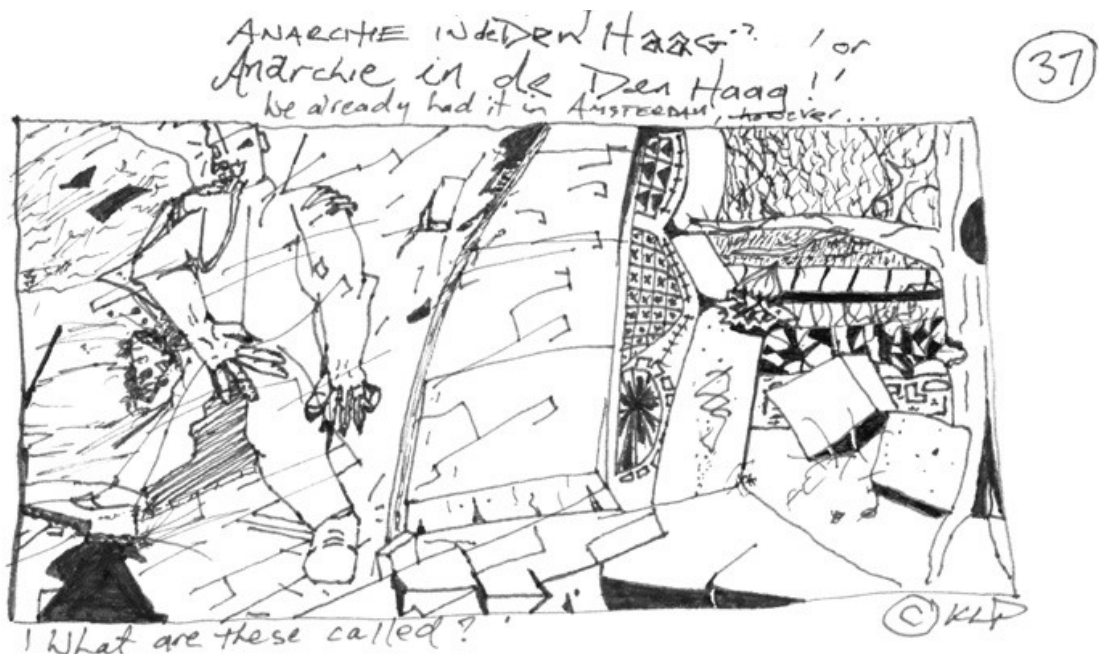 ANARCHIE IN de Den HAAG?? ! or
Anarchie in de Den Haag!'
We already had it in AMSTERDAM, however...
37
'What are these called?'
© KLP